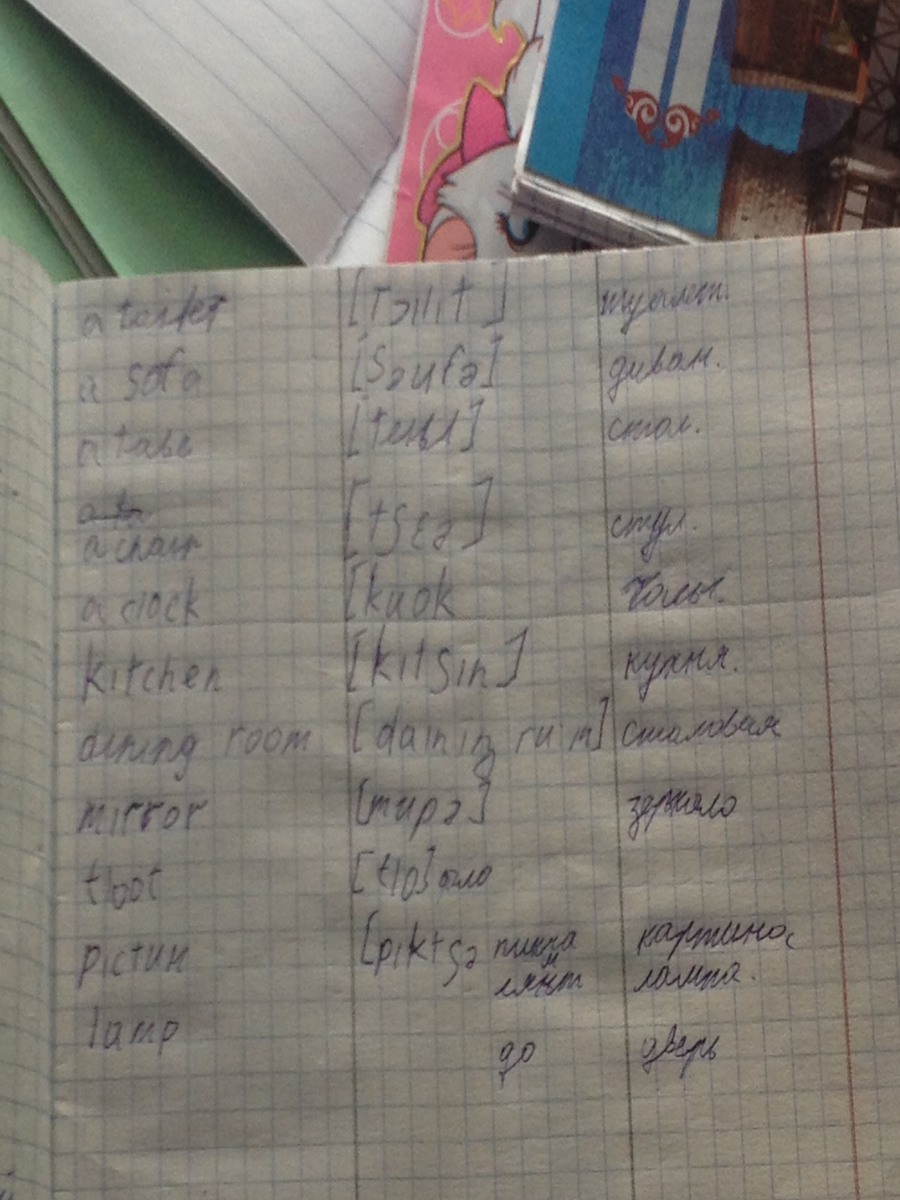 a toilet [тəllıt] туалет.
a sofa [səufə] диван.
a table [teıbl] стол.
a chair [tʃɛə] стул.
a clock [kuok часы.
kitchen [kıtʃın] кухня.
dining room [daınıŋ ru:m] столовая
mirror [mирə] зеркало
[tlo]
[pıktʃə картина
lamp лампа.
до дверь